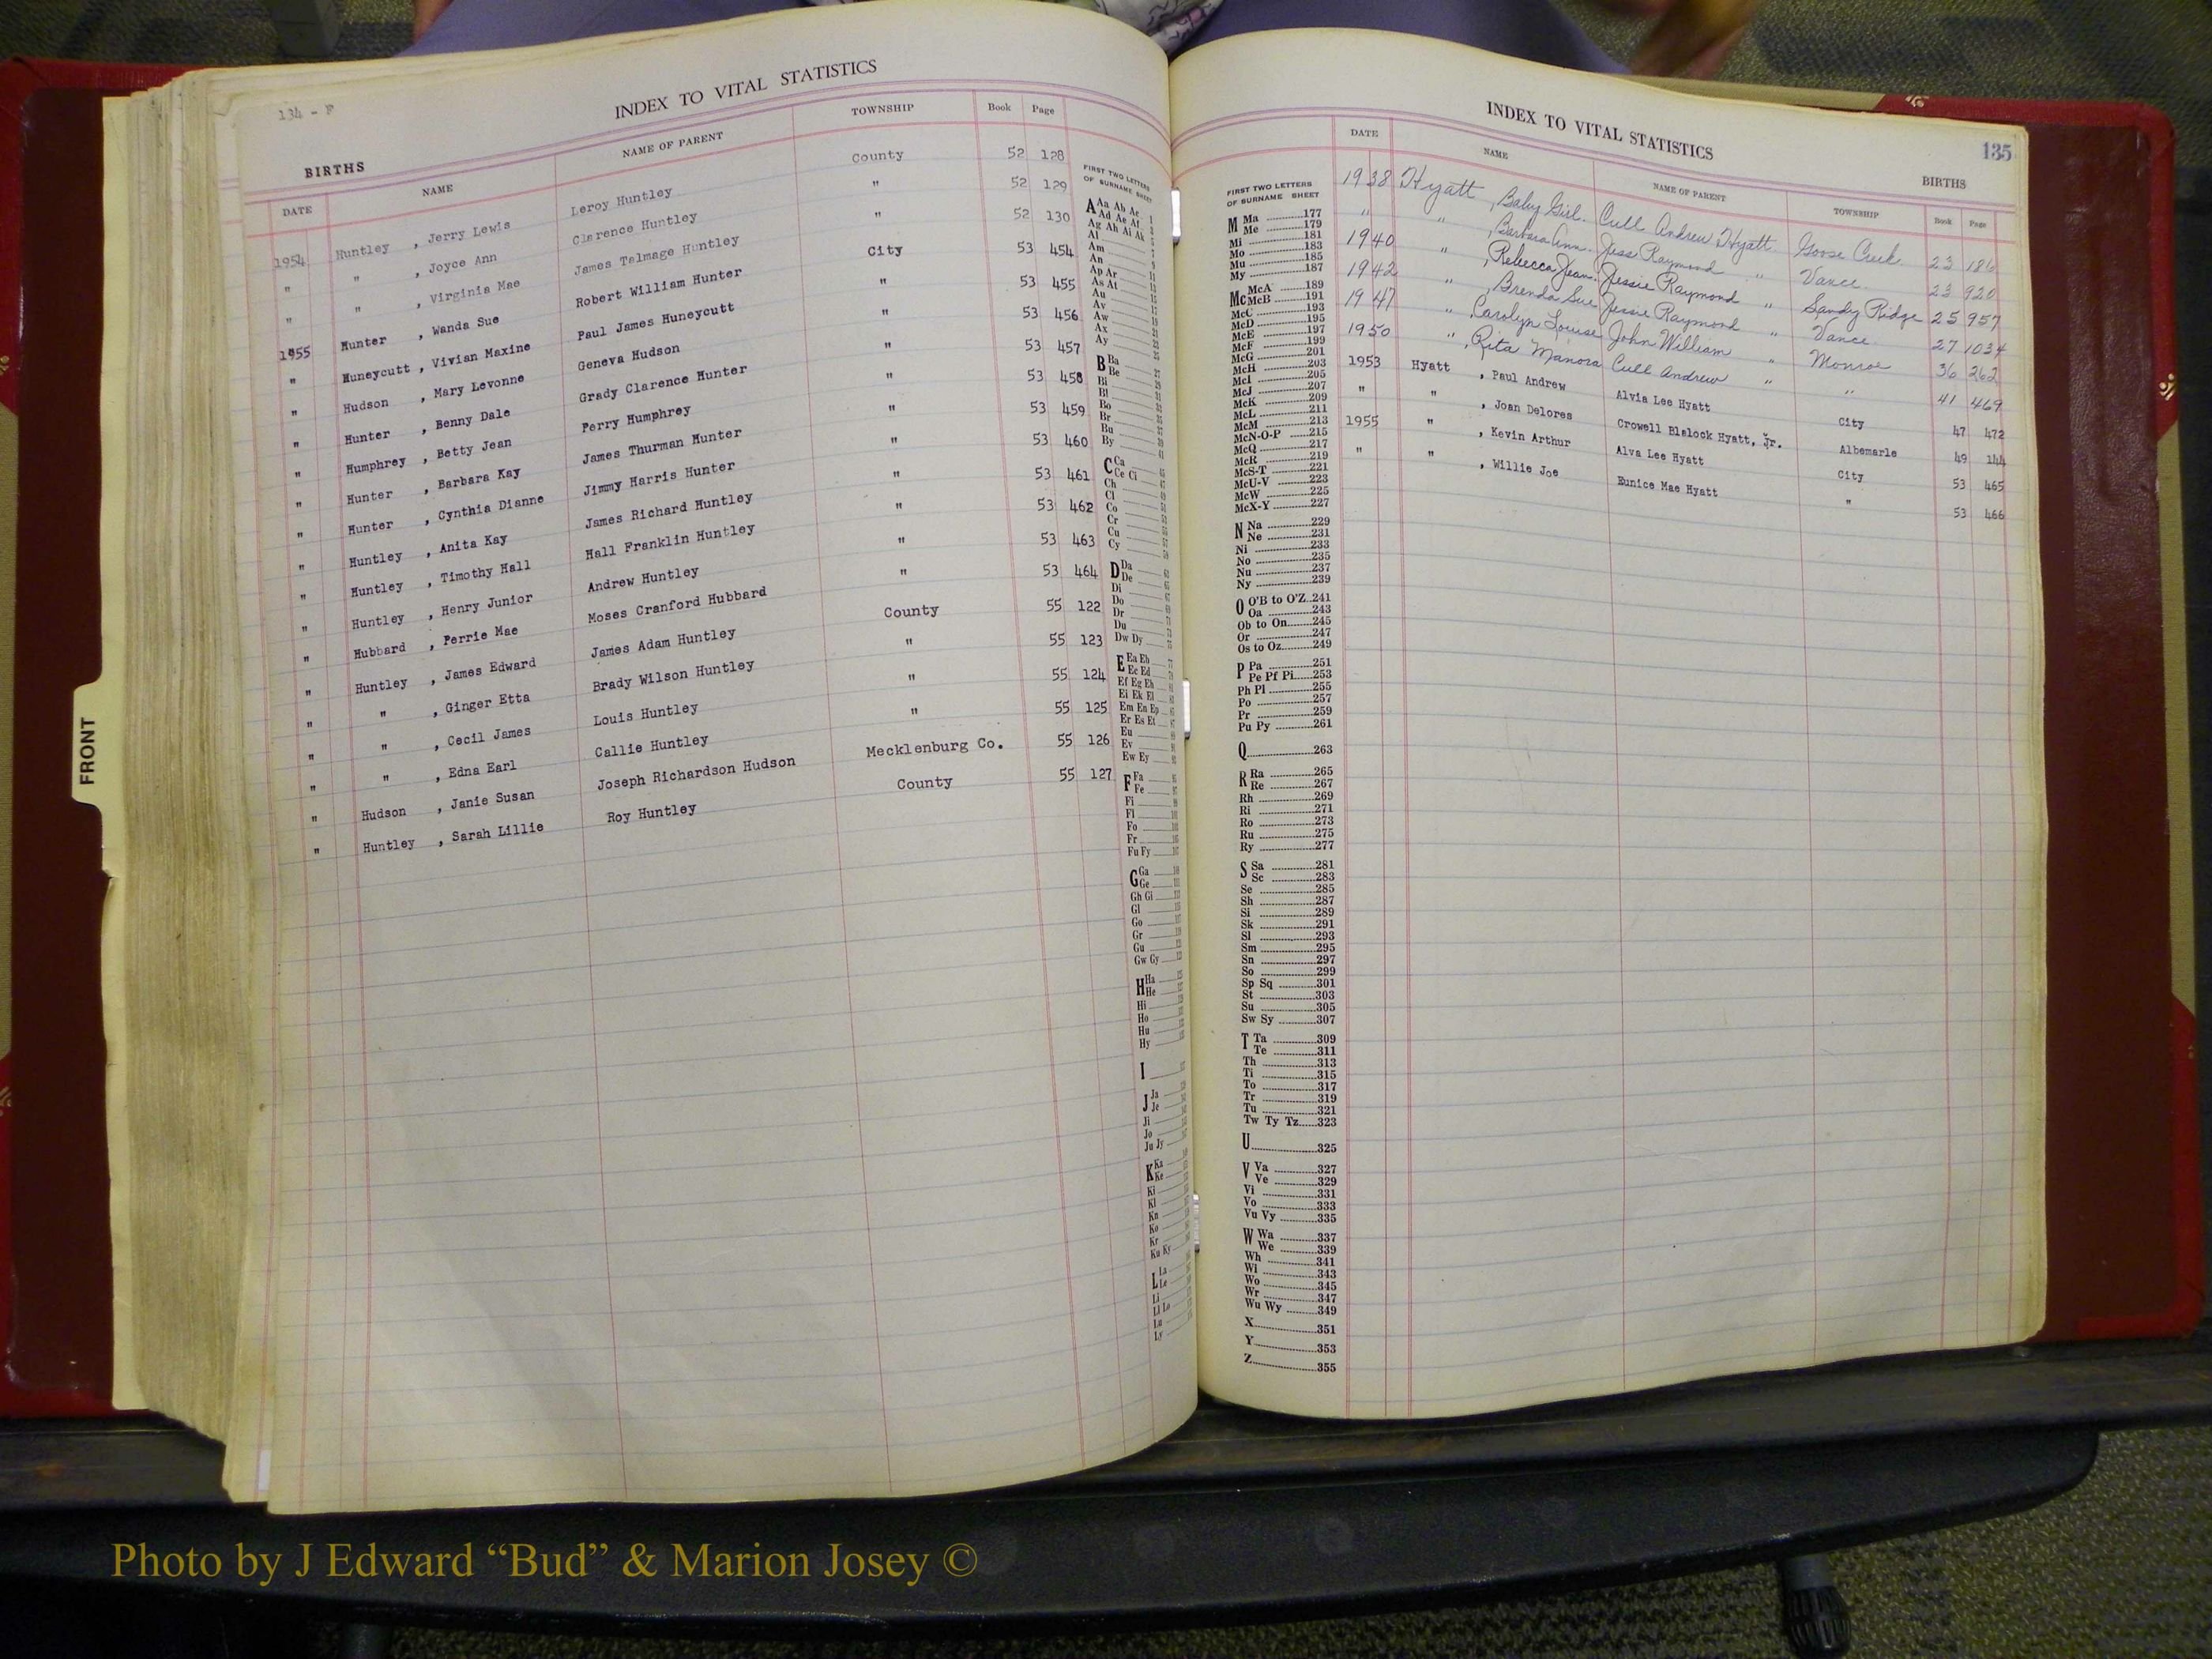 134 - F
INDEX TO VITAL STATISTICS
BIRTHS
DATE NAME NAME OF PARENT TOWNSHIP Book Page
1954 Huntley , Jerry Lewis Leroy Huntley County 52 128
" " , Joyce Ann Clarence Huntley " 52 129
" " , Virginia Mae James Talmage Huntley " 52 130
1955 Hunter , Wanda Sue Robert William Hunter City 53 454
" Huneycutt , Vivian Maxine Paul James Huneycutt " 53 455
" Hudson , Mary Levonne Geneva Hudson " 53 456
" Hunter , Benny Dale Grady Clarence Hunter " 53 457
" Humphrey , Betty Jean Perry Humphrey " 53 458
" Hunter , Barbara Kay James Thurman Hunter " 53 459
" Hunter , Cynthia Dianne Jimmy Harris Hunter " 53 460
" Huntley , Anita Kay James Richard Huntley " 53 461
" Huntley , Timothy Hall Hall Franklin Huntley " 53 462
" Huntley , Henry Junior Andrew Huntley " 53 463
" Hubbard , Perrie Mae Moses Cranford Hubbard " 53 464
" Huntley , James Edward James Adam Huntley County 55 122
" " , Ginger Etta Brady Wilson Huntley " 55 123
" " , Cecil James Louis Huntley " 55 124
" " , Edna Earl Callie Huntley " 55 125
" Hudson , Janie Susan Joseph Richardson Hudson Mecklenburg Co. 55 126
" Huntley , Sarah Lillie Roy Huntley County 55 127
FIRST TWO LETTERS
OF SURNAME SHEET
A Aa Ab Ac
Ad Ae Af
Ag Ah Ai Ak
Al
Am
An
Ap Ar
As At
Au
Av
Aw
Ax
Ay
B Ba
Be
Bi
Bl
Bo
Br
Bu
By
C Ca
Ce Ci
Ch
Cl
Co
Cr
Cu
Cy
D Da
De
Di
Do
Dr
Du
Dw Dy
E Ea Eb
Ec Ed
Ef Eg Eh
Ei Ek El
Em En Ep
Er Es Et
Eu
Ev
Ew Ey
F Fa
Fe
Fi
Fl
Fo
Fr
Fu Fy
G Ga
Ge
Gh Gi
Gl
Go
Gr
Gu
Gw Gy
H Ha
He
Hi
Ho
Hu
Hy
I
J Ja
Je
Ji
Jo
Ju Jy
K Ka
Ke
Ki
Kl
Kn
Ko
Kr
Ku Ky
L La
Le
Li
Ll Lo
Lu
Ly
FRONT
INDEX TO VITAL STATISTICS
135
BIRTHS
DATE NAME NAME OF PARENT TOWNSHIP Book Page
1938 Hyatt , Baby Girl. Cull Andrew Hyatt. Goose Creek 23 186
" " , Barbara Ann. Jess Raymond " Vance 23 920
1940 " , Rebecca Jean. Jessie Raymond " Sandy Ridge 25 957
1942 " , Brenda Sue Jessie Raymond " Vance 27 1034
1947 " , Carolyn Louise John William " Monroe 36 262
1950 " , Rita Manora Cull Andrew " " 41 469
1953 Hyatt , Paul Andrew Alvia Lee Hyatt City 47 472
" " , Joan Delores Crowell Blalock Hyatt, Jr. Albemarle 49 144
1955 " , Kevin Arthur Alva Lee Hyatt City 53 465
" " , Willie Joe Eunice Mae Hyatt " 53 466
FIRST TWO LETTERS
OF SURNAME SHEET
M Ma 177
Me 179
Mi 181
Mo 183
Mu 185
My 187
Mc McA 189
McB 191
McC 193
McD 195
McE 197
McF 199
McG 201
McH 203
McI 205
McJ 207
McK 209
McL 211
McM 213
McN-O-P 215
McQ 217
McR 219
McS-T 221
McU-V 223
McW 225
McX-Y 227
N Na 229
Ne 231
Ni 233
No 235
Nu 237
Ny 239
O O'B to O'Z 241
Oa 243
Ob to On 245
Or 247
Os to Oz 249
P Pa 251
Pe Pf Pi 253
Ph Pl 255
Po 257
Pr 259
Pu Py 261
Q 263
R Ra 265
Re 267
Rh 269
Ri 271
Ro 273
Ru 275
Ry 277
S Sa 281
Sc 283
Se 285
Sh 287
Si 289
Sk 291
Sl 293
Sm 295
Sn 297
So 299
Sp Sq 301
St 303
Su 305
Sw Sy 307
T Ta 309
Te 311
Th 313
Ti 315
To 317
Tr 319
Tu 321
Tw Ty Tz 323
U 325
V Va 327
Ve 329
Vi 331
Vo 333
Vu Vy 335
W Wa 337
We 339
Wh 341
Wi 343
Wo 345
Wr 347
Wu Wy 349
X 351
Y 353
Z 355
Photo by J Edward “Bud” & Marion Josey ©